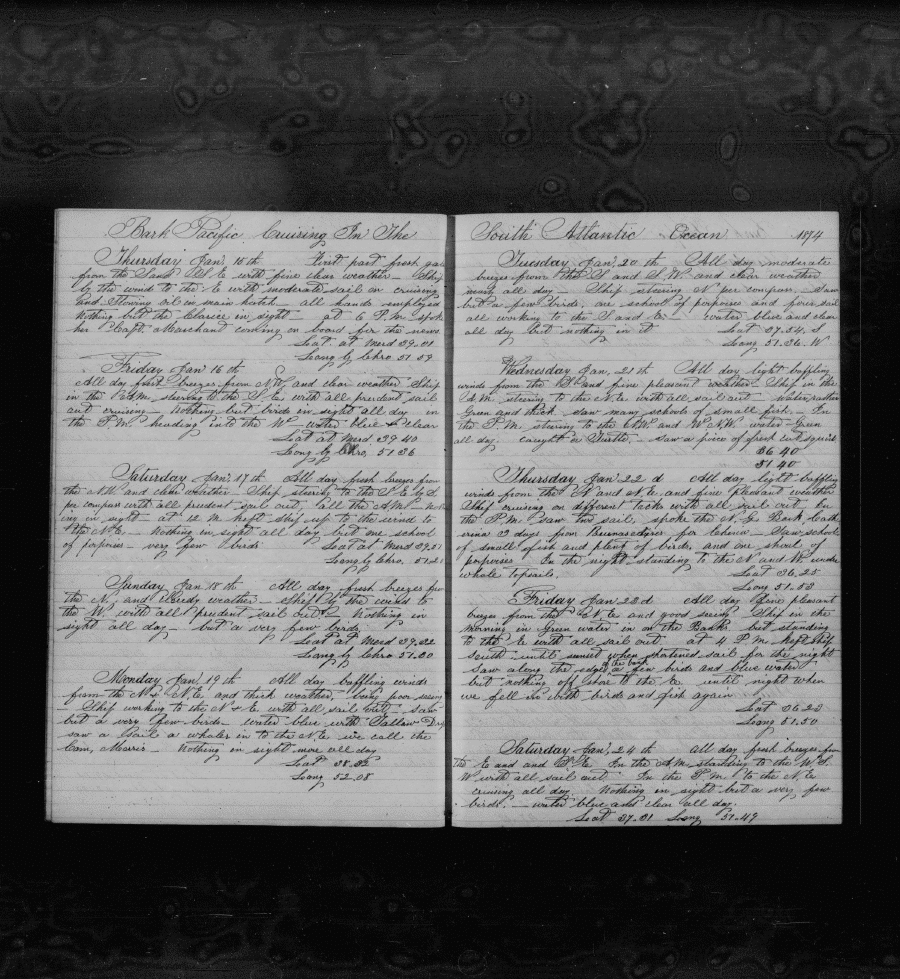 Bark Pacific Cruising In The
Thursday Jan, 15th First part fresh gale
from the S and S.E. with fine clear weather — Ship
by the wind to the E with moderate sail on cruising
and stowing oil in main hatch — all hands employed
Nothing but the Clarice in sight — at 6 P.M. spoke
her Capt Marchant coming on board for the news
Lat at Merd 39.01
Long by Chro 51.59
Friday Jan 16th
All day fresh breezes from N.W. and clear weather Ship
in the A.M. steering to the S.E. with all prudent sail
out cruising Nothing but birds in sight all day in
the P.M. heading into the W — water blue & clear
Lat at Merd 39 40
Long by Chro, 51 36
Saturday Jan, 17th All day fresh breezes from
the N.W and clear weather — Ship steering to the S.E by S
per compass with all prudent sail out, all the A.M. — noth
ing in sight — at 12 M. kept ship up to the wind to
the N.E. — Nothing in sight all day but one school
of porpoises — very few birds Lat at Merd 39.51
Long by Chro, 51.21
Sunday Jan 18th All day fresh breezes from
the N, and weather — Ship by the wind to
the W. with all prudent sail out — Nothing in
sight all day — but a very few birds
Lat at Merd 39.22
Long by Chro 51.30
Monday Jan, 19th All day baffling winds
from the N & N.E. and thick weather, being poor seeing
— Ship working to the N & E with all sail out — saw
but a very few birds — water blue with Tallow Drop
saw a Sail a whaler in to the N.E. we call the
Cam, Morris — Nothing in sight more all day
Lat 38.35
Long 52.08
South Atlantic Ocean 1874
Tuesday Jan, 20th All day moderate
breezes from the S and S.W. and clear weather
nearly all day — Ship steering N per compass, saw
but a few birds, one school of porpoises and four sail
all working to the S and E. water blue and clear
all day but nothing in it Lat 37.54, S
Long 51.36. W
Wednesday Jan, 21st All day light baffling
winds from the S and fine pleasant weather — Ship in the
A.M. steering to the N.E. with all sail out — water rather
Green and thick saw many schools of small fish. In
the P.M. steering to the N.W. and W.N.W. water Green
all day. caught a Turtle. saw a piece of fresh cut squid
36 40
51.40
Thursday Jan 22d All day light baffling
winds from the N and N.E. and fine pleasant weather
Ship cruising on different tacks with all sail out In
the P.M. saw two sail, spoke the N.G. Bark Cath
erina 3 days from for saw schools
of small fish and plenty of birds, and one shoal of
porpoises In the night standing to the N and W. under
whole topsails, Lat 36.25
Long 51.53
Friday Jan 23d All day fine pleasant
breezes from the E.N.E. and good seeing Ship in the
morning in Green water or on the Bank but standing
to the E with all sail out at 4 P.M. kept ship
South until sunset when shortened sail for the night
of the bank
Saw along the edge a few birds and blue water
but nothing off shore to the E until night when
we fell in with birds and fish again
Lat 36.23
Long 51.50
Saturday Jan, 24th all day fresh breezes from
the E and and S.E. In the A.M. standing to the W.S.
W. with all sail out In the P.M. to the N.E
cruising all day Nothing in sight but a very few
birds. — water blue and clear all day.
Lat 37.31 Long 51.49